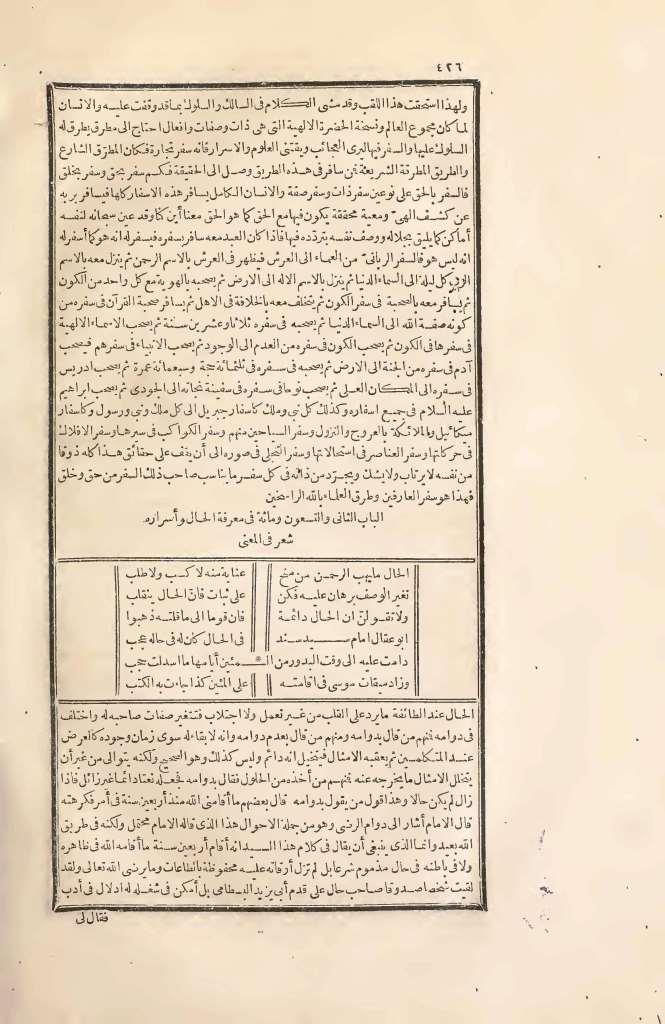 ٤٢٦
ولهذا استحقت هذا اللقب وقد مشى الكلام فى السالك والسلوك بما قد وقفت عليه والانسان
لما كان مجموع العالم ونسخة الحضرة الالهية التى هى ذات وصفات وافعال احتاج الى مطرق يطرق له
السلوك عليها والسفر فيها ليرى العجائب ويقتنى العلوم والاسرار فانه سفر تجارة فكان المطرق الشارع
والطريق المطرقة الشريعة فمن سافر فى هذه الطريق وصل الى الحقيقة فكم سفر بحق وسفر بخلق
فالسفر بالحق على نوعين سفر ذات وسفر صفة والانسان الكامل يسافر هذه الاسفار كلها فيسافر بربه
عن كشف الهى ومعية محققة يكون فيها مع الحق كما هو الحق معنا أين كنا وقد عين سبحانه لنفسه
أماكن كما يليق بجلاله ووصف نفسه بتردده فيها فاذا كان العبد معه سافر بسفره فيسفر له انه هو كما أسفر له
انه ليس هو فالسفر الربانى من العماء الى العرش فيظهر فى العرش بالاسم الرحمن ثم ينزل معه بالاسم
الرب كل ليلة الى السماء الدنيا ثم ينزل بالاسم الاله الى الارض ثم يصحبه بالهوية مع كل واحد من الكون
ثم يسافر معه بالصحبة فى سفر الكون ثم يتخلف معه بالخلافة فى الاهل ثم يسافر صحبة القرآن فى سفره من
كونه صفة لله الى السماء الدنيا ثم يصحبه فى سفره ثلاثا وعشرين سنة ثم يصحب الاسماء الالهية
فى سفرها فى الكون ثم يصحب الكون فى سفره من العدم الى الوجود ثم يصحب الانبياء فى سفرهم فيصحب
آدم فى سفره من الجنة الى الارض ثم يصحبه فى سفره فى ثلثمائة حجة وسبعمائة عمرة ثم يصحب ادريس
فى سفره الى المكان العلى ثم يصحب نوحا فى سفره فى سفينة نجاته الى الجودى ثم يصحب ابراهيم
عليه السلام فى جميع اسفاره وكذلك كل نبى وملك كاسفار جبريل الى كل ملك ونبى ورسول وكاسفار
ميكائيل والملائكة بالعروج والنزول وسفر السياحين منهم وسفر الكواكب فى سيرها وسفر الافلاك
فى حركاتها وسفر العناصر فى استحالاتها وسفر التجلى فى صوره الى أن يقف على حقائق هذا كله ذوقا
من نفسه لا يرتاب ولا يشك ويجرد من ذاته فى كل سفر ما يناسب صاحب ذلك السفر من حق وخلق
فهذا هو سفر العارفين وطرق العلماء بالله الراسخين
الباب الثانى والتسعون ومائة فى معرفة الحال وأسراره
شعر فى المعنى
الحال ما يهب الرحمن من منح عناية منه لا كسب ولا طلب
تغير الوصف برهان عليه فكن على ثبات فان الحال ينقلب
ولا تقولن ان الحال دائمة فان قوما الى ما قلته ذهبوا
ابو عقال امام سيد سند فى الحال كان له فى حاله عجب
دامت عليه الى وقت البدور من ال * ـمئين أيامها ما اسدلت حجب
وزاد ميقات موسى فى اقامته على المئين كذا جاءت به الكتب
الحال عند الطائفة ما يرد على القلب من غير تعمل ولا اجتلاب فتتغير صفات صاحبه له واختلف
فى دوامه فمنهم من قال بدوامه ومنهم من قال بعدم دوامه وانه لا بقاء له سوى زمان وجوده كالعرض
عند المتكلمين ثم يعقبه الامثال فيتخيل انه دائم وليس كذلك وهو الصحيح ولكنه يتوالى من غير أن
يتخلل الامثال ما يخرجه عنه فمنهم من أخذه من الحلول فقال بدوامه فجعله نعتا دائما غير زائل فاذا
زال لم يكن حالا وهذا قول من يقول بدوامه قال بعضهم ما أقامنى الله منذ أربعين سنة فى أمر فكرهته
قال الامام أشار الى دوام الرضى وهو من جملة الاحوال هذا الذى قاله الامام محتمل ولكنه فى طريق
الله بعيد وانما الذى ينبغى أن يقال فى كلام هذا السيد انه أقام أربعين سنة ما أقامه الله فى ظاهره
ولا فى باطنه فى حال مذموم شرعا بل لم تزل أوقاته عليه محفوظة بالطاعات وما يرضى الله تعالى ولقد
لقيت شخصا صدوقا صاحب حال على قدم أبى يزيد البسطامى بل أمكن فى شغله له ادلال فى أدب
فقال لى